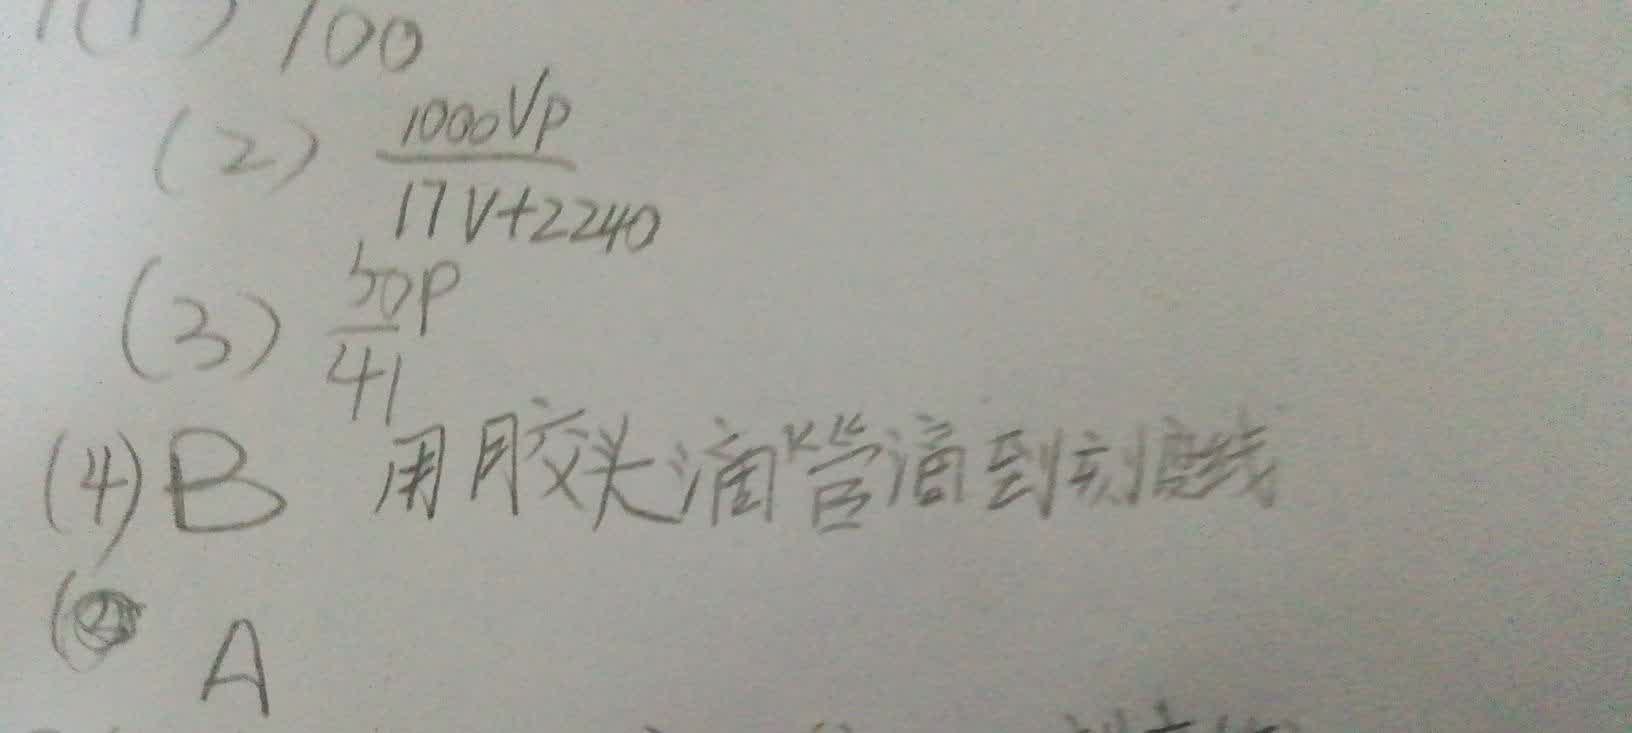 1(1) 100
(2) 1000Vρ
17V+2240
(3) 50ρ
41
(4) B 用胶头滴管滴到刻度线
(②
A